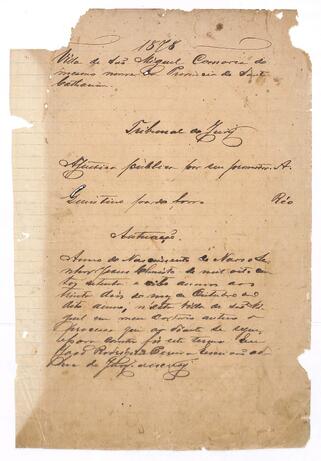 1878
Villa de São Miguel Comarca do
mesmo nome da Provincia de Santa
Catharina
Tribunal do Jury
A Justiça publica por seu promotor A.
Réo
Autuação.
Anno do Nascimento de Nosso Se
nhor Jesus Christo de mil oito cen
tos setenta e oito annos aos
vinte dois do mez de Outubro do
dito anno, n'esta Villa de São Mi
guel em meu Cartorio autuei o
processo que ao diante se segue,
e para constar fiz este termo Eu
João Rodrigues Pereira escrivão
do Jury o escrevy